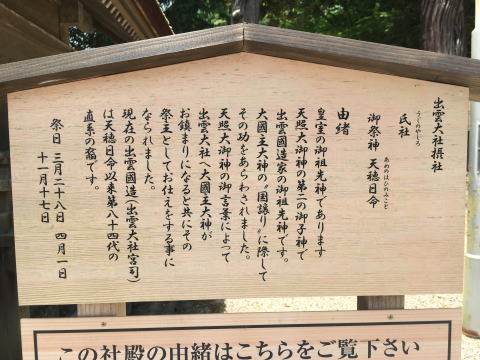 出雲大社摂社
氏社
うじのやしろ
御祭神 天穂日命
あめのほひのみこと
由緒
皇室の御祖先神であります
天照大御神の第二の御子神で
出雲國造家の御祖先神です。
大國主大神の〝國譲り〟に際して
その功をあらわされました。
天照大御神の御言葉によって
出雲大社へ大國主大神が
お鎮まりになると共にその
祭主としてお仕えをする事に
なられました。
現在の出雲國造(出雲大社宮司)
は天穂日命以来第八十四代の
直系の裔です。
祭日 三月二十八日 四月一日
十一月十七日
この社殿の由緒はこちらをご覧下さい